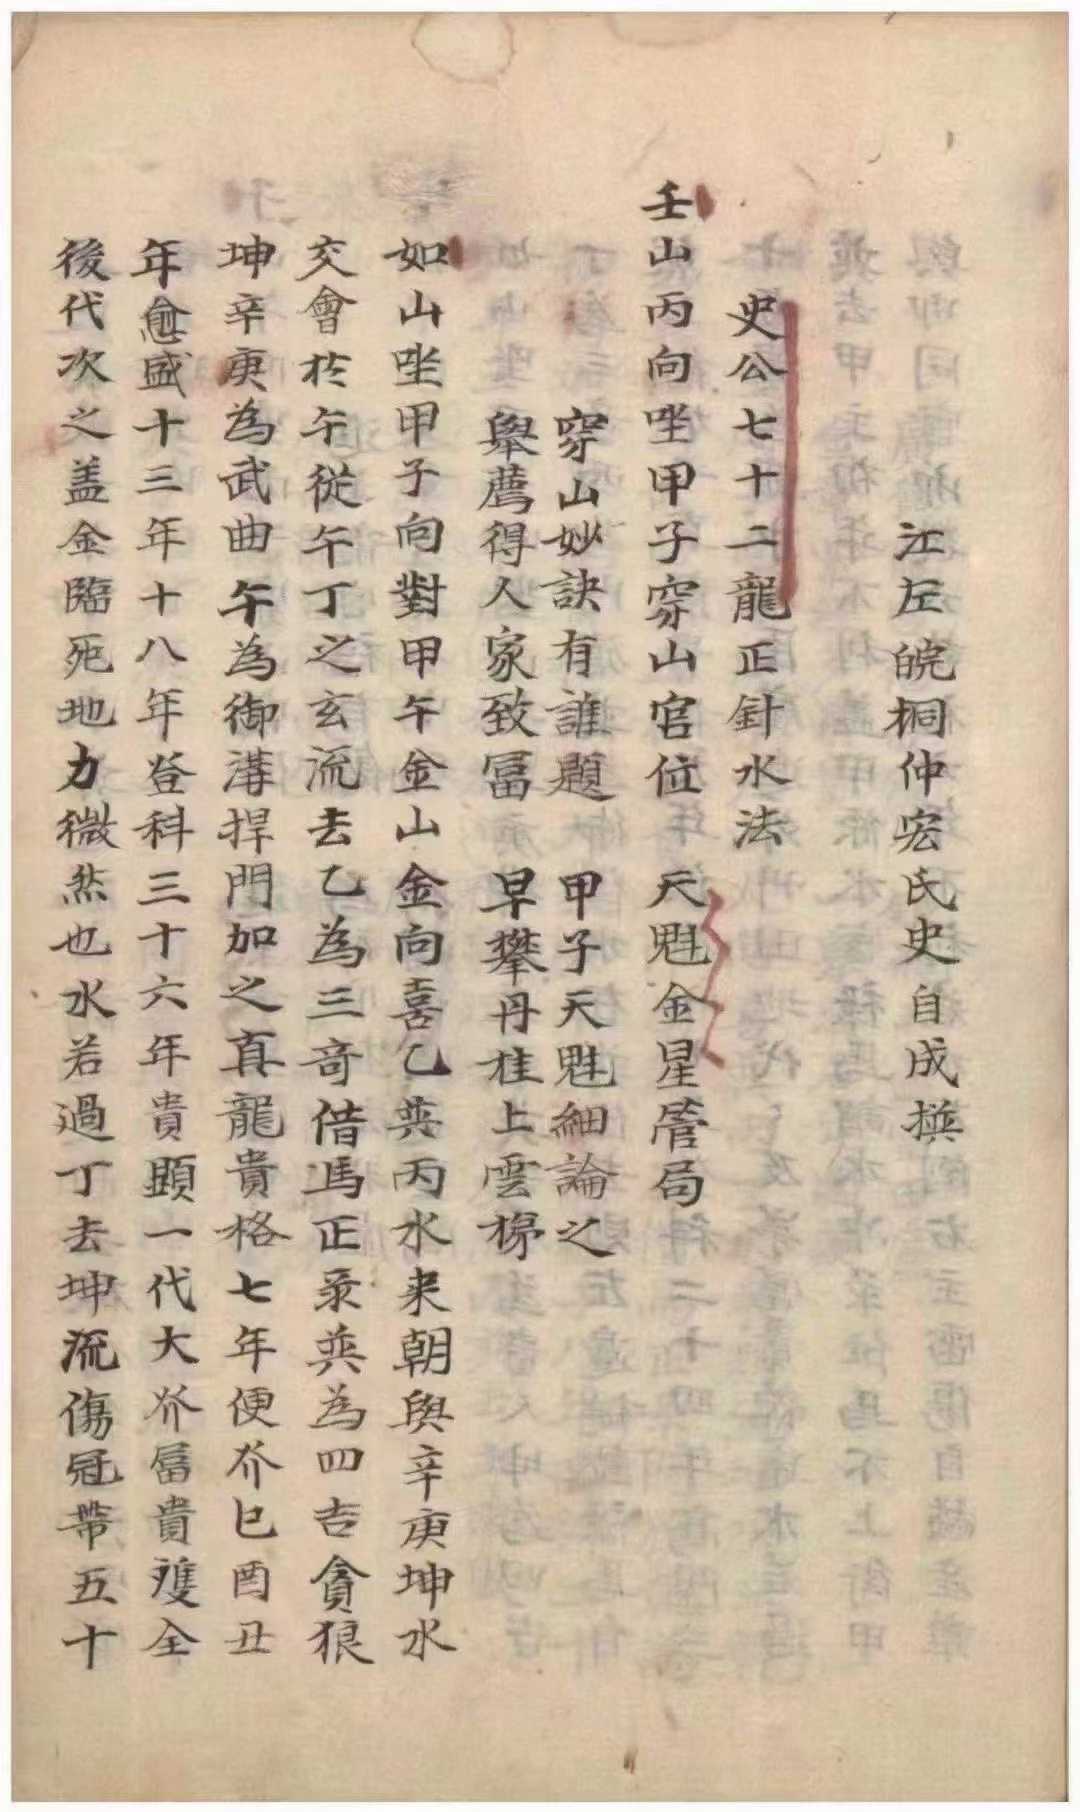 江左皖桐仲宏氏史自成撰
史公七十二龍正針水法
壬山丙向坐甲子穿山官位 天魁金星管局
穿山妙訣有誰題 甲子天魁細論之
舉薦得人家致冨 早攀丹桂上雲梯
如山坐甲子向對甲午金山金向喜乙巽丙水来朝與辛庚坤水
交會於午從午丁之玄流去乙為三奇借馬正彔巽為四吉貪狼
坤辛庚為武曲午為御溝捍門加之真龍貴格七年便介巳酉丑
年愈盛十三年十八年登科三十六年貴顕一代大介冨貴䨇全
後代次之盖金臨死地力微然也水若過丁去坤流傷冠帶五十